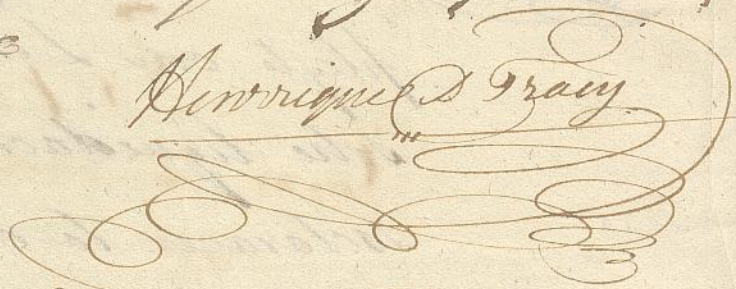 Henrrique D Tracy